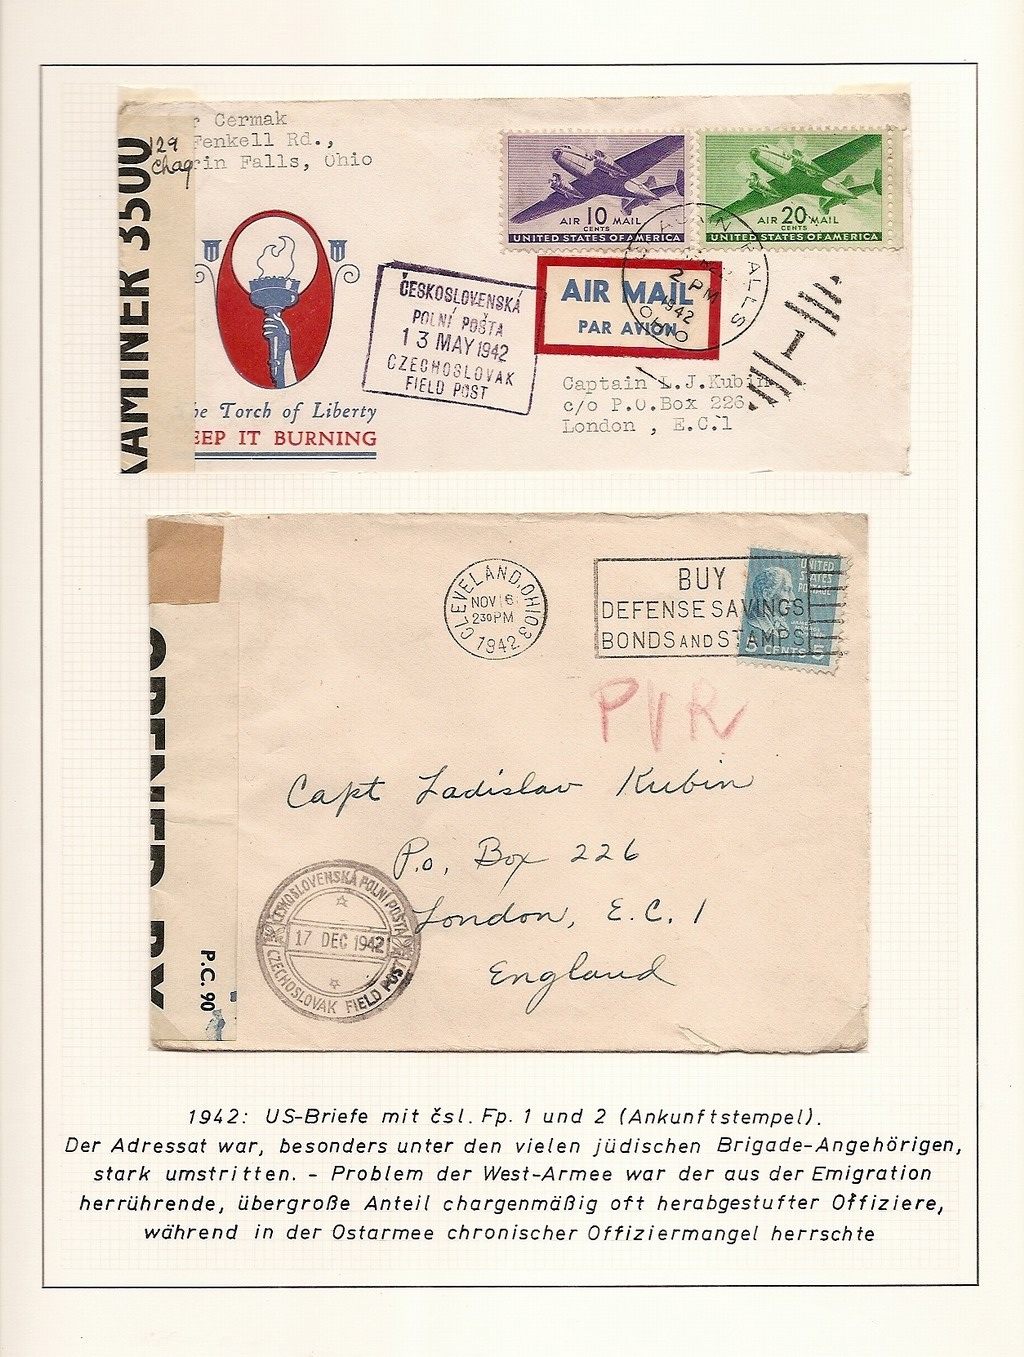 r Cermak
129 Fenkell Rd.,
Chagrin Falls, Ohio
XAMINER 3500
AIR 10 MAIL
CENTS
UNITED STATES OF AMERICA
AIR 20 MAIL
CENTS
UNITED STATES OF AMERICA
FALLS
2 PM
1942
OHIO
ČESKOSLOVENSKÁ
POLNÍ POŠTA
13 MAY 1942
CZECHOSLOVAK
FIELD POST
AIR MAIL
PAR AVION
1
Captain L.J.Kubin
c/o P.O.Box 226
London , E.C.1
he Torch of Liberty
EEP IT BURNING
CLEVELAND, OHIO 3
NOV 16
230 PM
1942
BUY
DEFENSE SAVINGS
BONDS AND STAMPS
UNITED
STATES
POSTAGE
5 CENTS 5
PVR
OPENED BY
P.C. 90
Capt Ladislav Kubin
P.o. Box 226
London, E.C. 1
England
ČESKOSLOVENSKÁ POLNÍ POŠTA
17 DEC 1942
CZECHOSLOVAK FIELD POST
1942: US-Briefe mit čsl. Fp. 1 und 2 (Ankunftstempel).
Der Adressat war, besonders unter den vielen jüdischen Brigade-Angehörigen,
stark umstritten. - Problem der West-Armee war der aus der Emigration
herrührende, übergroße Anteil chargenmäßig oft herabgestufter Offiziere,
während in der Ostarmee chronischer Offiziermangel herrschte